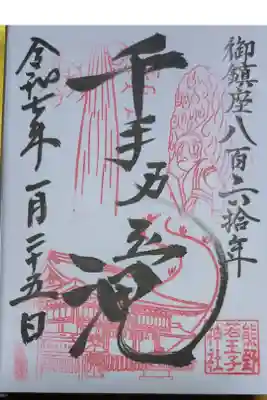 御鎮座八百六拾年
千手
令和七年一月二十五日
熊野
若王子
神社